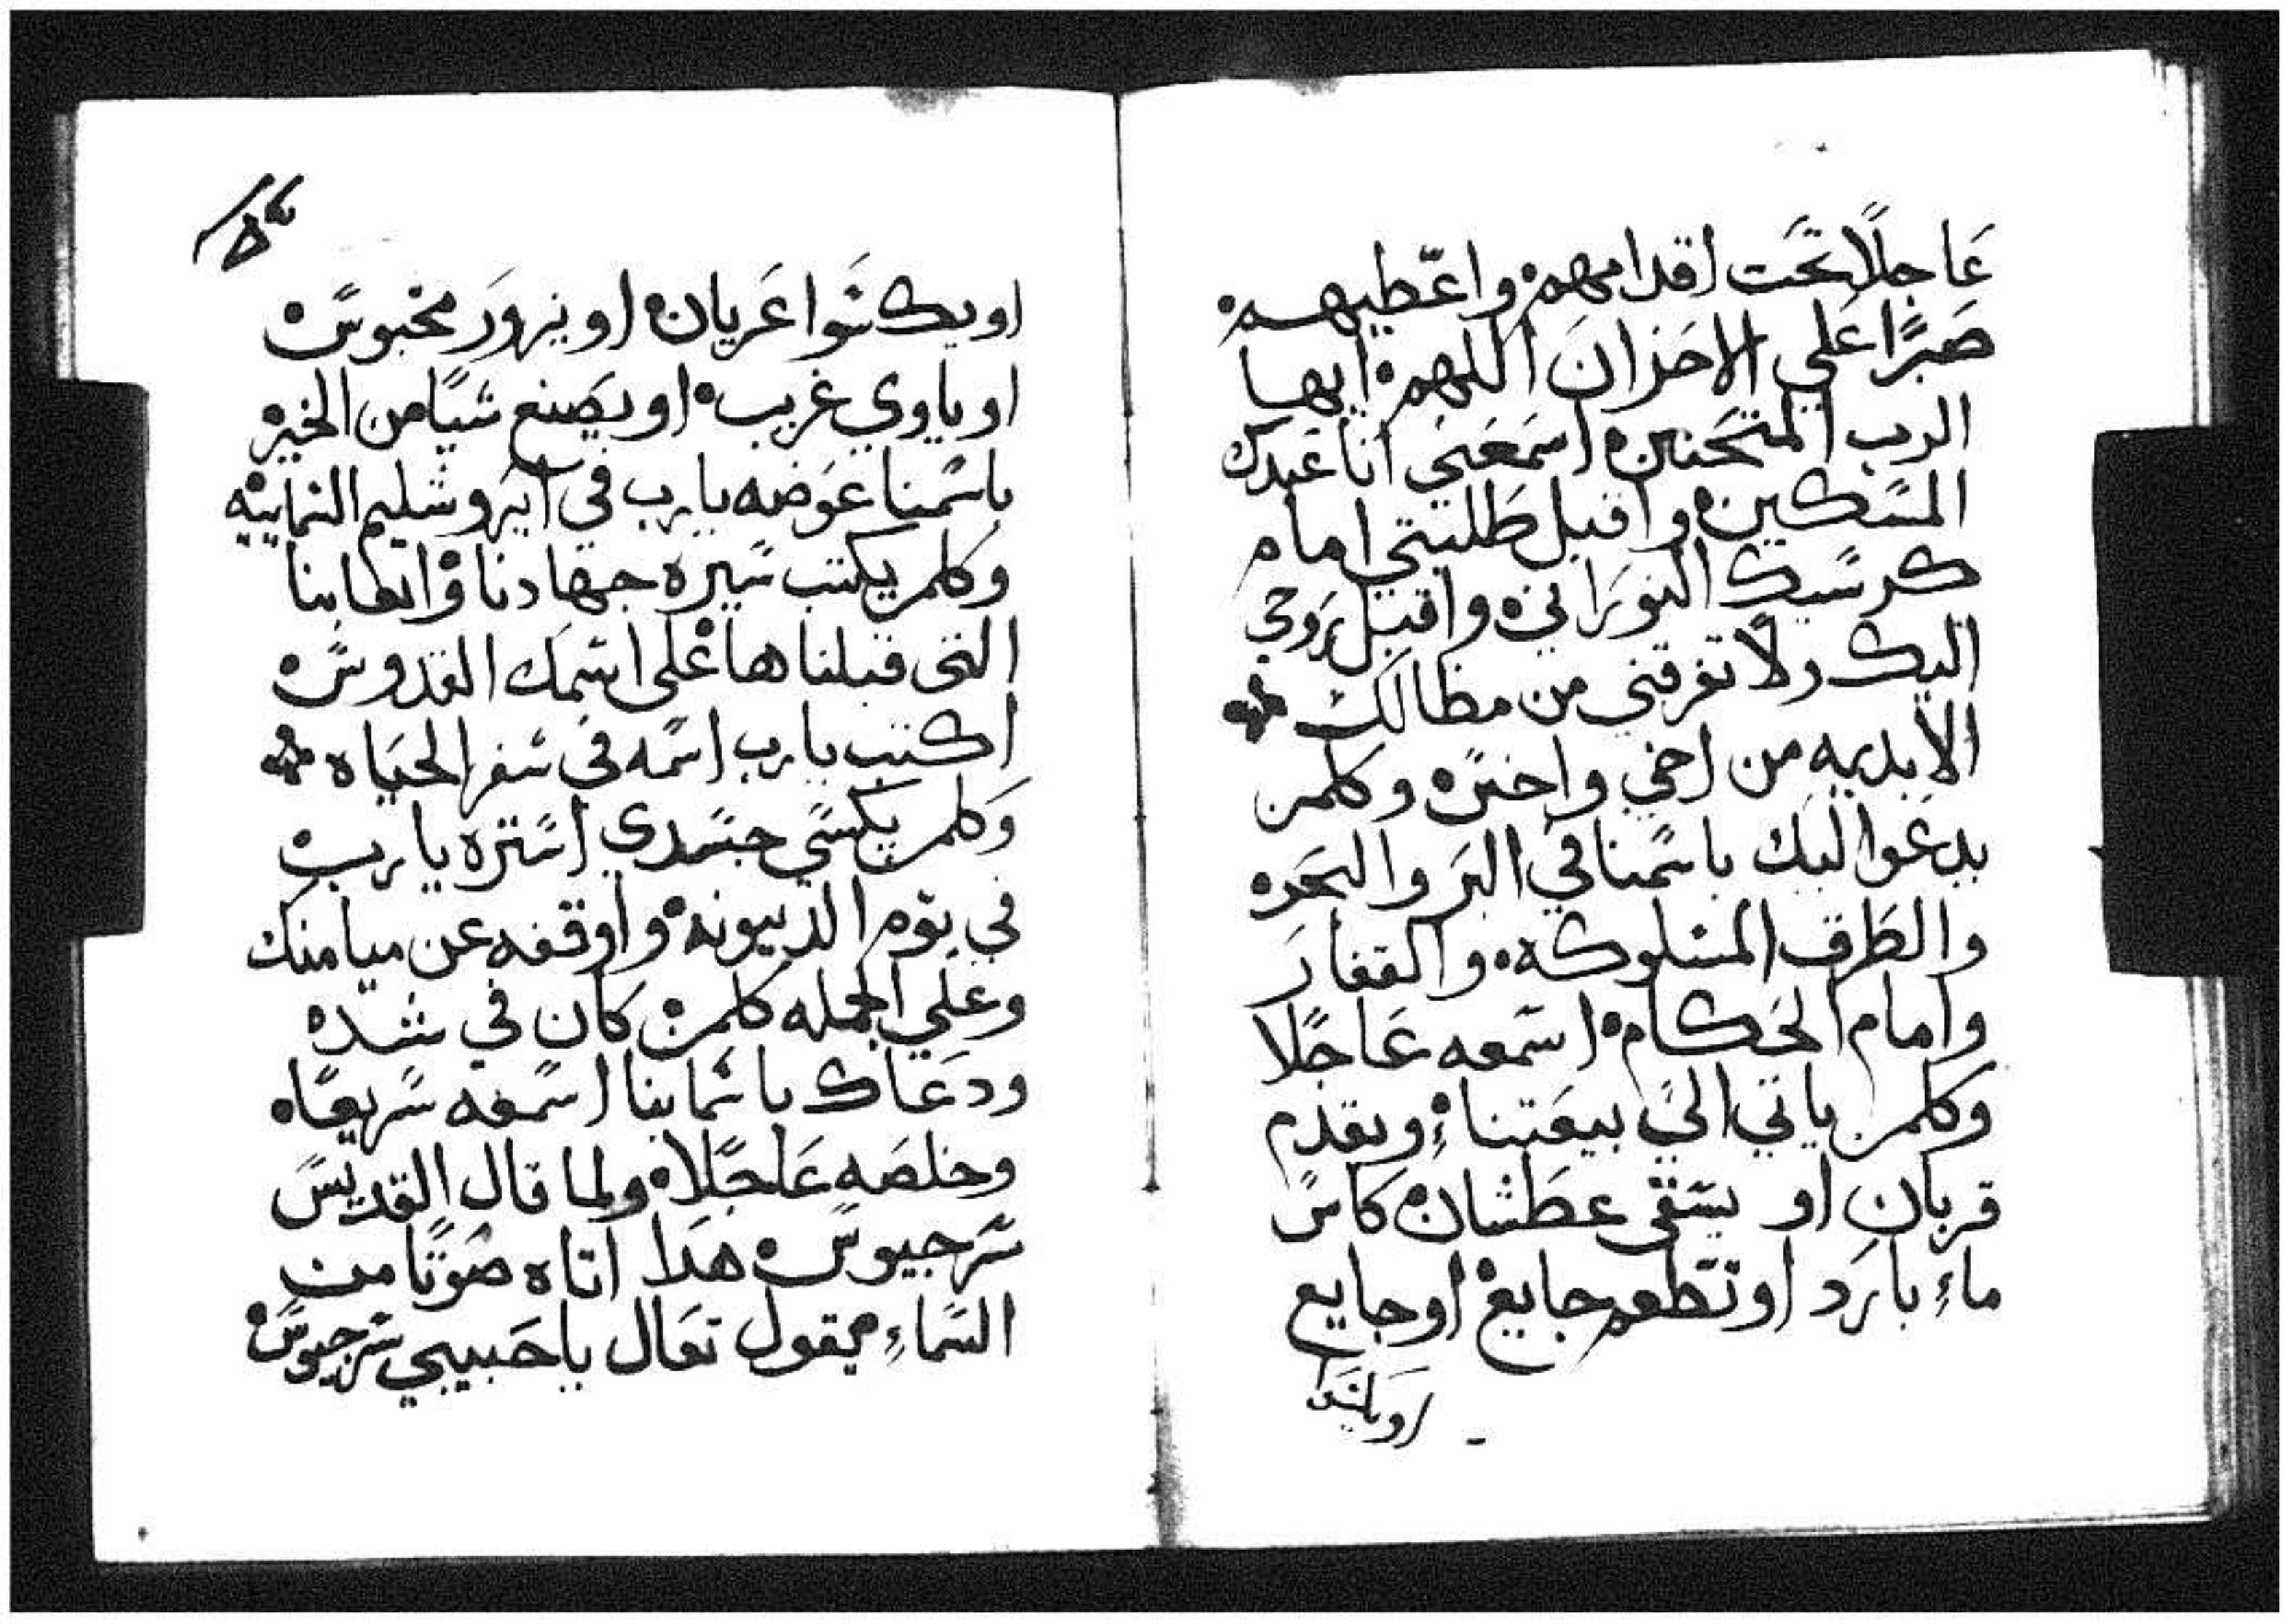 عَاجلًا تحَت اقدامهم واعّطيهم
صَبرًا عَلي الاحَزانَ اللهم ايها
الرب المتحَنن اسمَعَني انا عَبدك
المسكين واقبل طَلبتي امام
كرسيك النورَاني واقبل رَوحي
اليك ولا تفرقني من مظالك
الابديه من اخي واخس وكلمن
يدعَوا اليك باسمنا في البَر والبحَر
والطَرق المسلوكه والقفارَ
وامام الحَكام اسمعه عَاجلًا
وكلمن ياتي الي بيعَتنا ويقدم
قربان او يسَقي عطَشان كاس
ماءِ بارَد او تطَعم جايع او جايع
او يكسَوا عَريان او يزورَ محبوس
او ياوي غريب او يصَنع شيًا من الخير
باسمنا عوَضه يارب في ايروشليم السمايية
وكلمن يكتب سيرة جهادنا واتعابنا
التي قبلناها عَلي اسمك القدوس
اكتب يارب اسمه في سفر الحيَاه
وَكلمن يكسَي جسَدي استره يارب
في يوَم الدينونه واوقفه عن ميامنك
وعَلي الجمله كلمن كان في شده
ودعَاك باسماينا اسمعه سريعًا
وخلصَه عَاجلًا ولما قال القديسَ
سَرجيوس هذا اتاه صَوتًا من
السَماءِ يقول تعَال ياحَبيبي سرجيوس